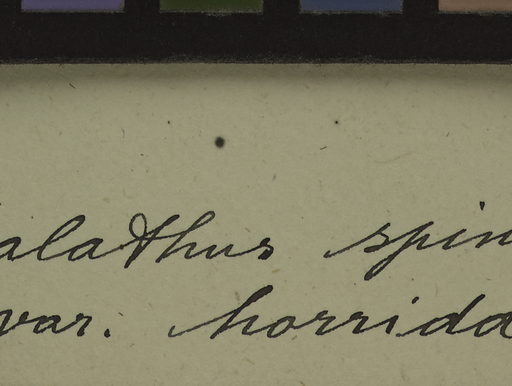 alathus spin
var. horrida